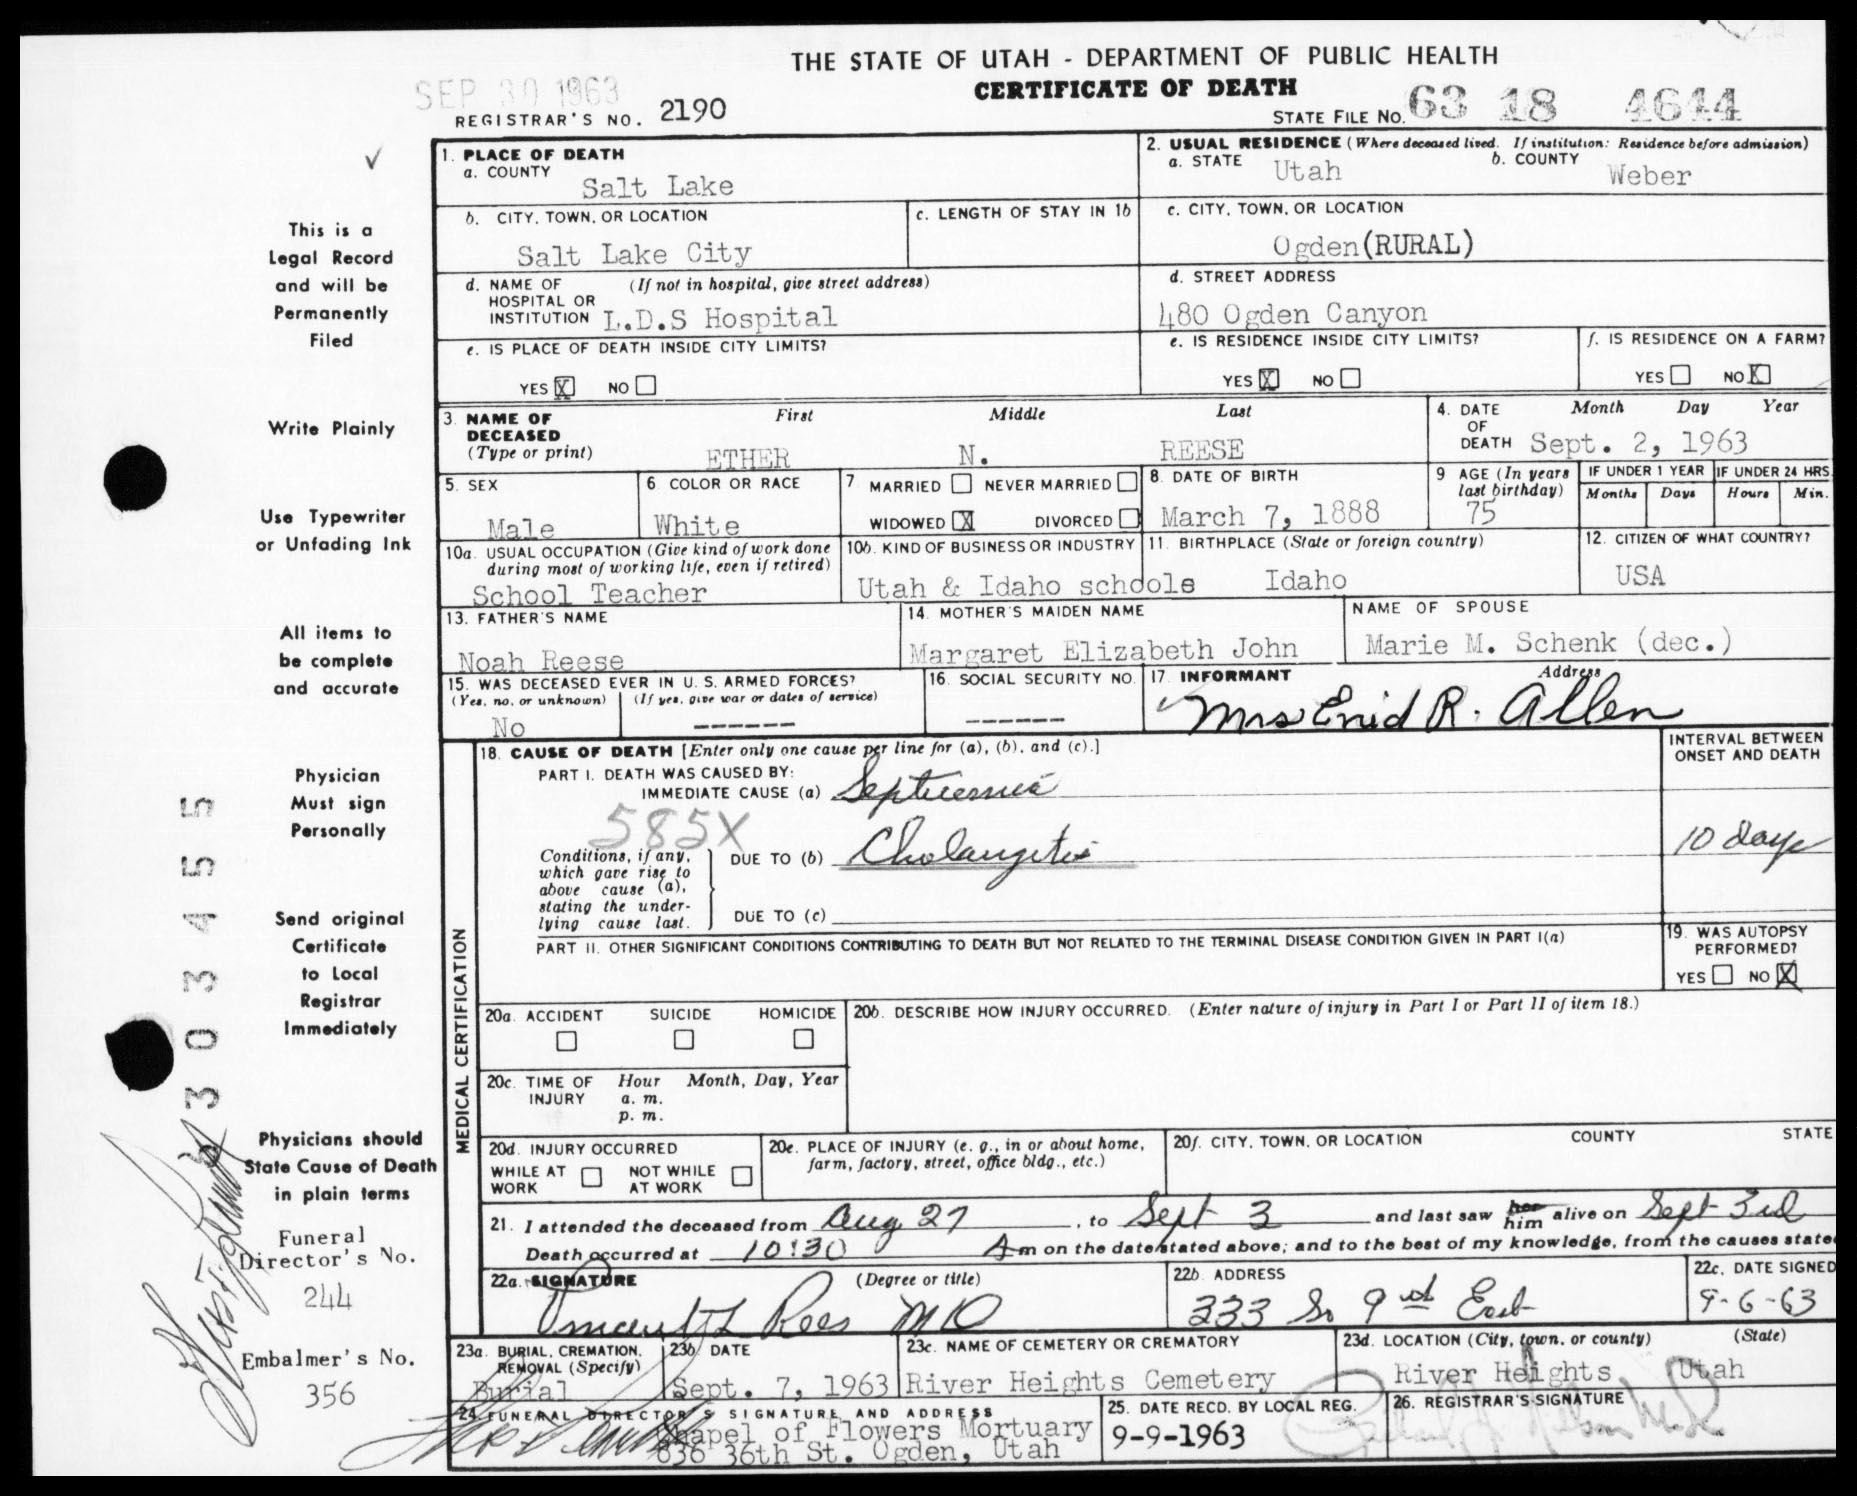 THE STATE OF UTAH - DEPARTMENT OF PUBLIC HEALTH
SEP 30 1963
CERTIFICATE OF DEATH
REGISTRAR'S NO. 2190
STATE FILE NO. 63 18 4644
1. PLACE OF DEATH
a. COUNTY
Salt Lake
2. USUAL RESIDENCE (Where deceased lived. If institution: Residence before admission)
a. STATE Utah b. COUNTY Weber
b. CITY, TOWN, OR LOCATION
Salt Lake City
c. LENGTH OF STAY IN 1b
c. CITY, TOWN, OR LOCATION
Ogden (RURAL)
d. NAME OF (If not in hospital, give street address)
HOSPITAL OR
INSTITUTION L.D.S Hospital
d. STREET ADDRESS
480 Ogden Canyon
e. IS PLACE OF DEATH INSIDE CITY LIMITS?
YES X NO
e. IS RESIDENCE INSIDE CITY LIMITS?
YES X NO
f. IS RESIDENCE ON A FARM?
YES NO X
3. NAME OF DECEASED
(Type or print)
First Middle Last
ETHER N. REESE
4. DATE OF DEATH
Month Day Year
Sept. 2, 1963
5. SEX
Male
6 COLOR OR RACE
White
7 MARRIED NEVER MARRIED
WIDOWED X DIVORCED
8. DATE OF BIRTH
March 7, 1888
9 AGE (In years last birthday)
75
IF UNDER 1 YEAR
Months Days
IF UNDER 24 HRS.
Hours Min.
10a. USUAL OCCUPATION (Give kind of work done
during most of working life, even if retired)
School Teacher
10b. KIND OF BUSINESS OR INDUSTRY
Utah & Idaho schools
11. BIRTHPLACE (State or foreign country)
Idaho
12. CITIZEN OF WHAT COUNTRY?
USA
13. FATHER'S NAME
Noah Reese
14. MOTHER'S MAIDEN NAME
Margaret Elizabeth John
NAME OF SPOUSE
Marie M. Schenk (dec.)
15. WAS DECEASED EVER IN U. S. ARMED FORCES?
(Yes, no, or unknown) (If yes, give war or dates of service)
No ------
16. SOCIAL SECURITY NO.
------
17. INFORMANT Address
Mrs Enid R. Allen
MEDICAL CERTIFICATION
18. CAUSE OF DEATH [Enter only one cause per line for (a), (b), and (c).]
INTERVAL BETWEEN
ONSET AND DEATH
PART I. DEATH WAS CAUSED BY:
IMMEDIATE CAUSE (a) Septicemia
585X
Conditions, if any,
which gave rise to
above cause (a),
stating the under-
lying cause last.
DUE TO (b) Cholangitis
10 days
DUE TO (c)
PART II. OTHER SIGNIFICANT CONDITIONS CONTRIBUTING TO DEATH BUT NOT RELATED TO THE TERMINAL DISEASE CONDITION GIVEN IN PART I(a)
19. WAS AUTOPSY
PERFORMED?
YES NO X
20a. ACCIDENT SUICIDE HOMICIDE
20b. DESCRIBE HOW INJURY OCCURRED. (Enter nature of injury in Part I or Part II of item 18.)
20c. TIME OF INJURY
Hour Month, Day, Year
a. m.
p. m.
20d. INJURY OCCURRED
WHILE AT WORK NOT WHILE AT WORK
20e. PLACE OF INJURY (e. g., in or about home,
farm, factory, street, office bldg., etc.)
20f. CITY, TOWN, OR LOCATION COUNTY STATE
21. I attended the deceased from Aug 27, to Sept 3 and last saw her him alive on Sept 3rd
Death occurred at 10:30 A m on the date stated above; and to the best of my knowledge, from the causes state
22a. SIGNATURE (Degree or title)
Rees MD
22b. ADDRESS
333 So 9th East
22c. DATE SIGNED
9-6-63
23a. BURIAL, CREMATION,
REMOVAL (Specify)
Burial
23b DATE
Sept. 7, 1963
23c. NAME OF CEMETERY OR CREMATORY
River Heights Cemetery
23d. LOCATION (City, town, or county) (State)
River Heights Utah
24. FUNERAL DIRECTOR'S SIGNATURE AND ADDRESS
Chapel of Flowers Mortuary
836 36th St. Ogden, Utah
25. DATE RECD. BY LOCAL REG.
9-9-1963
26. REGISTRAR'S SIGNATURE
This is a
Legal Record
and will be
Permanently
Filed
Write Plainly
Use Typewriter
or Unfading Ink
All items to
be complete
and accurate
Physician
Must sign
Personally
Send original
Certificate
to Local
Registrar
Immediately
Physicians should
State Cause of Death
in plain terms
Funeral
Director's No.
244
Embalmer's No.
356
3303455